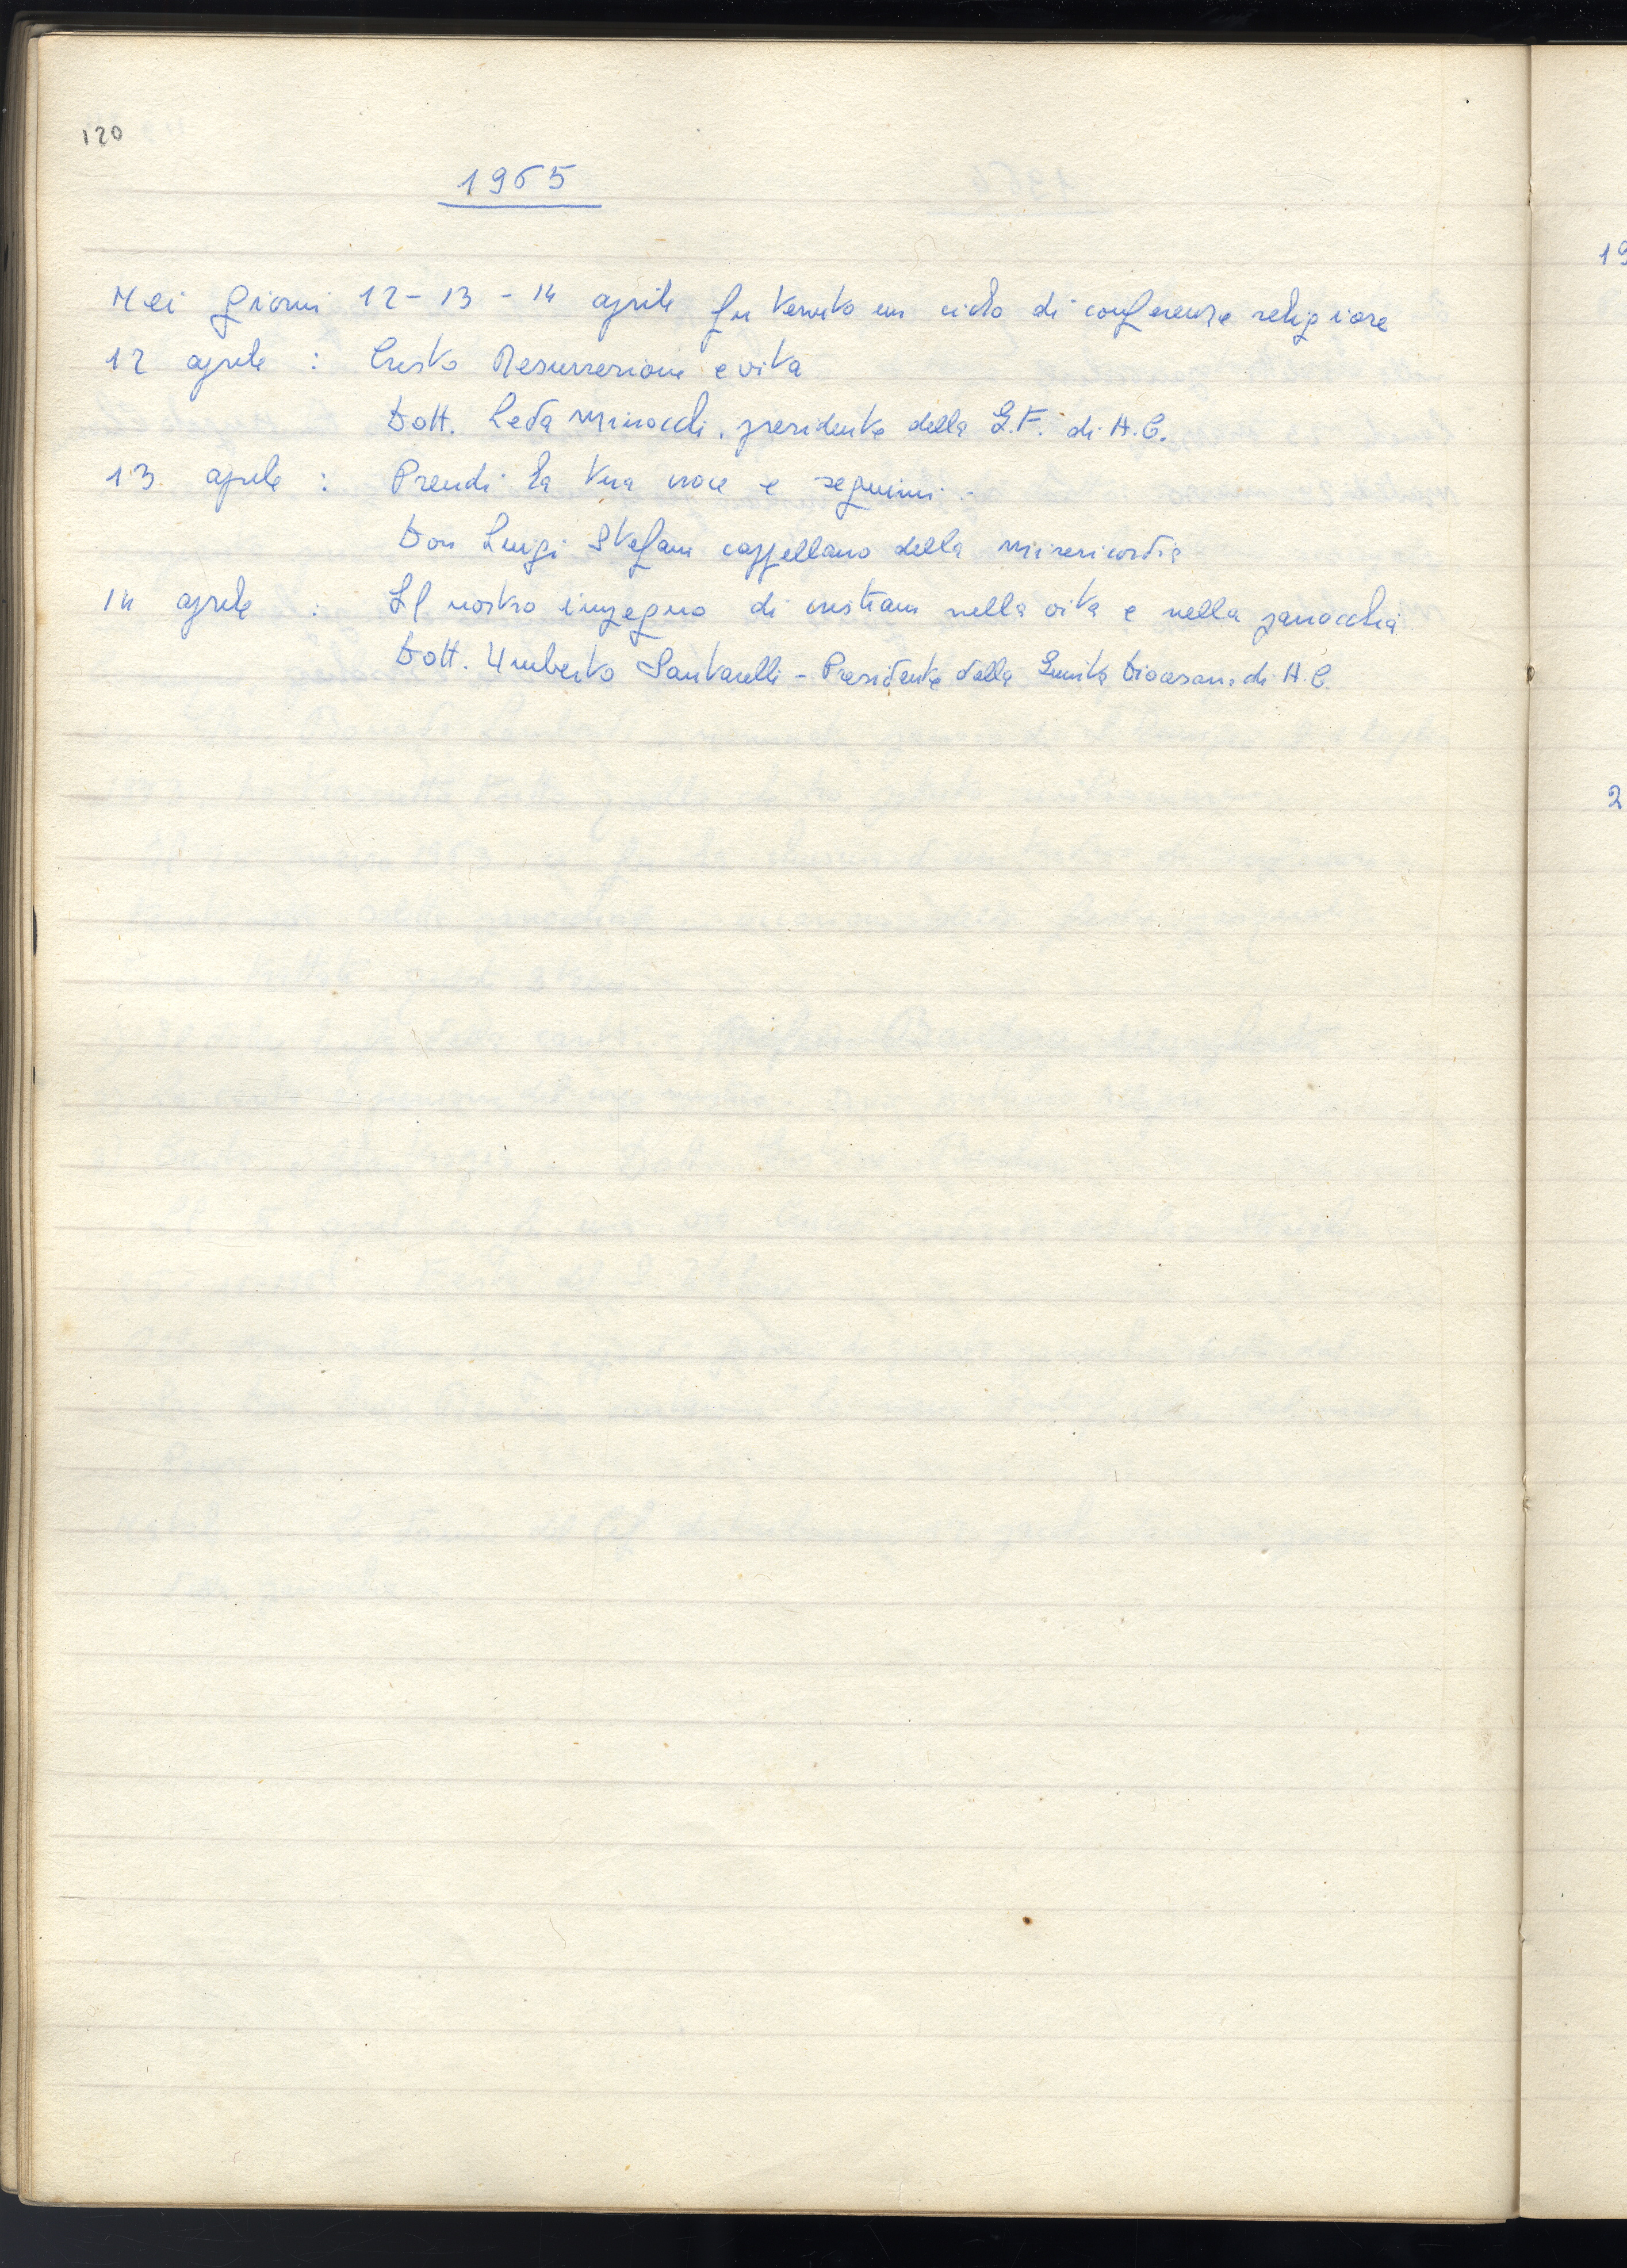 120
1965
Nei giorni 12-13-14 aprile fu tenuto un ciclo di conferenze religiose
12 aprile : Cristo Resurrezione e vita
Dott. Leda Minocchi, presidente della G.F. di A.C.
13 aprile : Prendi la tua croce e seguimi.
Don Luigi Stefani cappellano della Misericordia
14 aprile : Il nostro impegno di cristiani nella vita e nella parrocchia
Dott. Umberto Santarelli - Presidente della Giunta Diocesana di A.C.
19
2